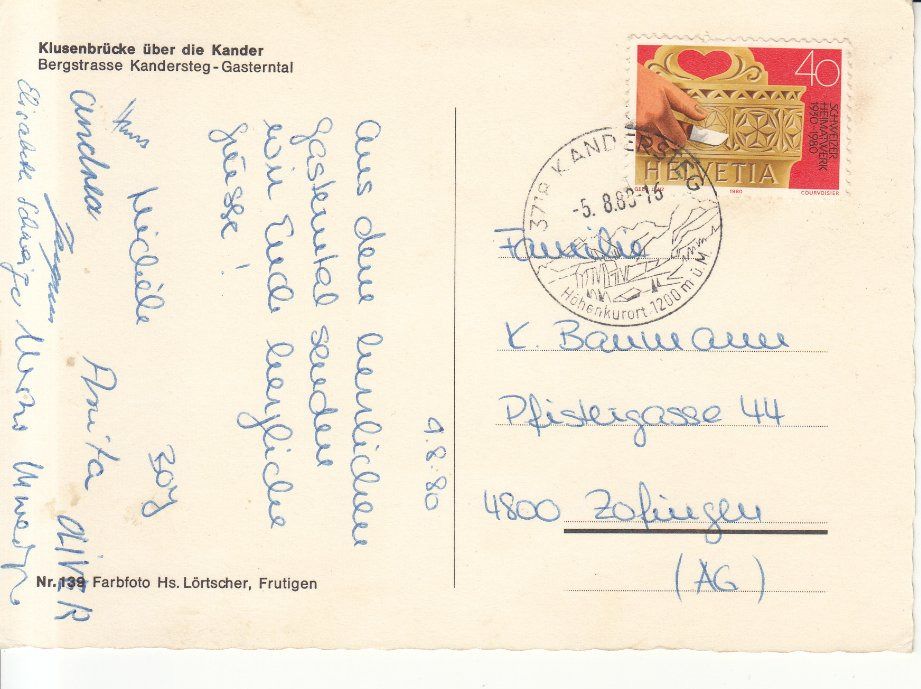 Klusenbrücke über die Kander
Bergstrasse Kandersteg-Gasterntal
9.8.80
Aus dem herrlichen
Gasterntal senden
wir Euch herzliche
Grüsse!
Michèle
Boy
Andrea
Anita
OLIVER
Elisabeth
Nr. 139 Farbfoto Hs. Lörtscher, Frutigen
40
SCHWEIZER
HEIMATWERK
1930-1980
HELVETIA
1980
COURVOISIER
3718 KANDERSTEG
-5.8.80-15
Höhenkurort 1200 m ü.M
Familie
K. Baumann
Pfistergasse 44
4800 Zofingen
(AG)